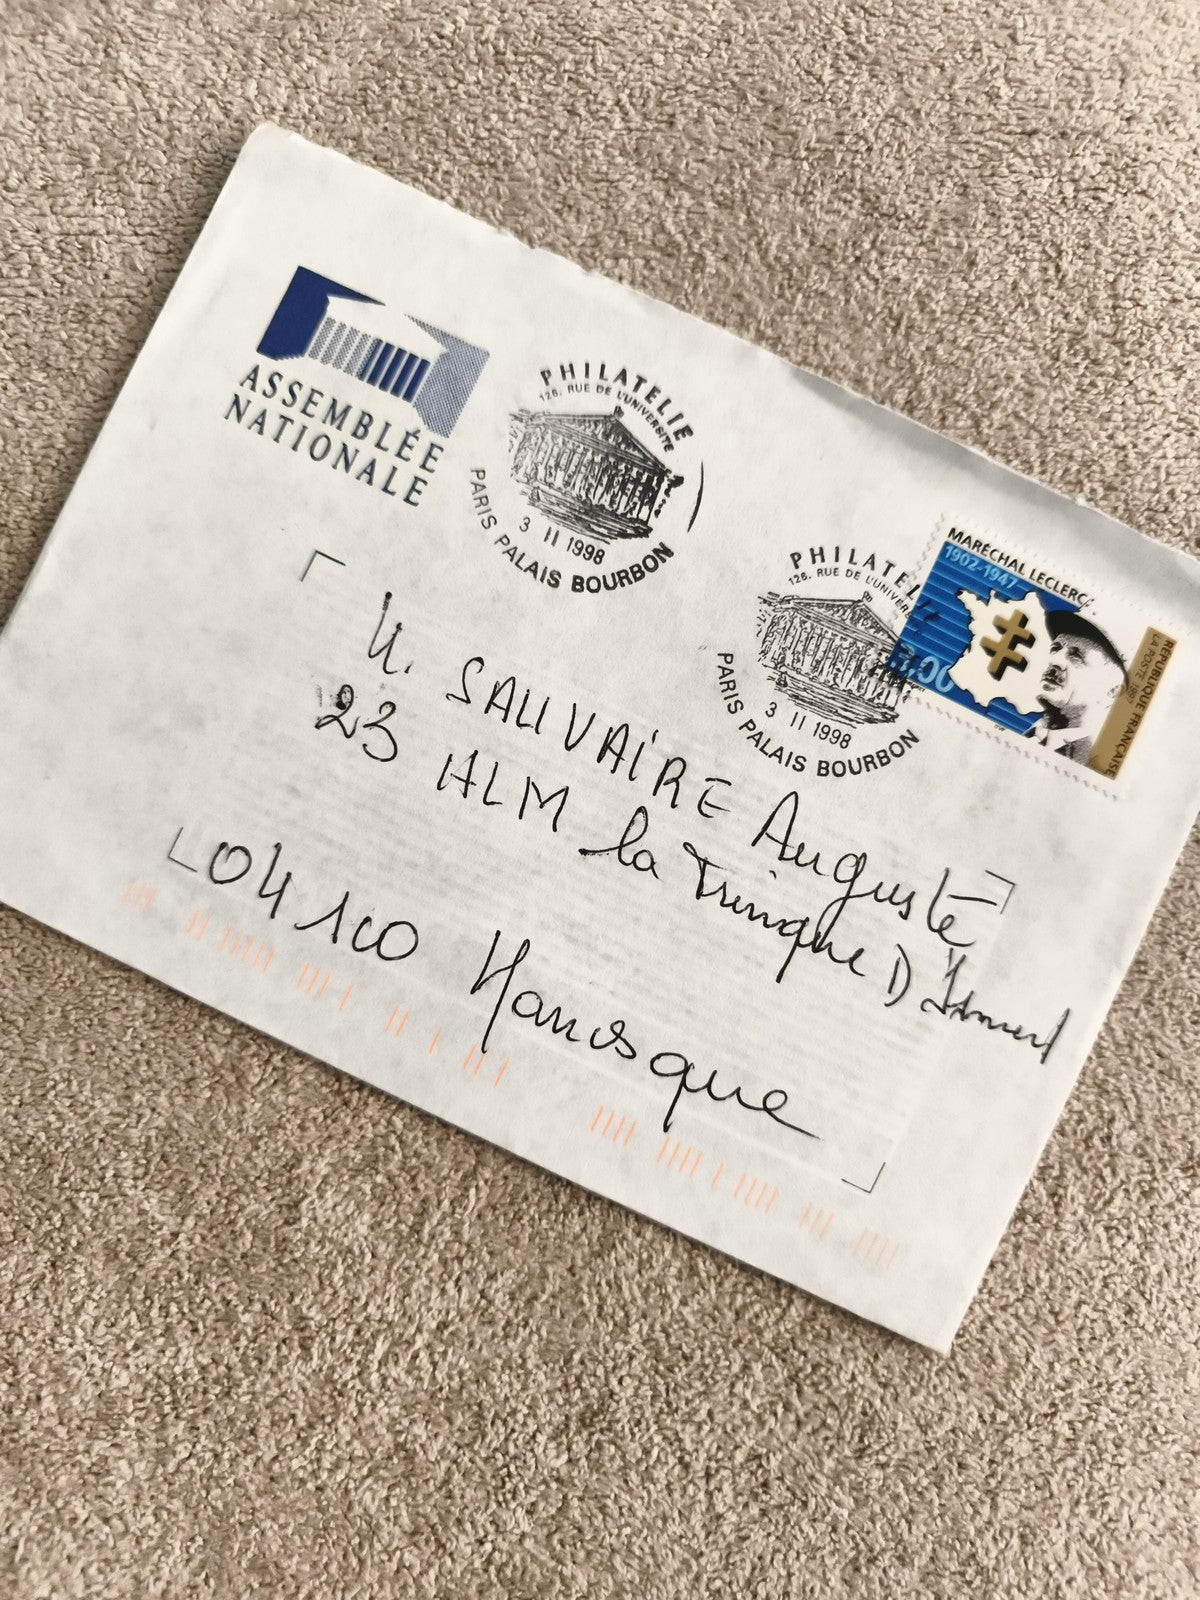 ASSEMBLÉE
NATIONALE
PHILATELIE
126, RUE DE L'UNIVERSITE
3 11 1998
PARIS PALAIS BOURBON
PHILATEL
126, RUE DE L'UNIVER
3 11 1998
PARIS PALAIS BOURBON
MARÉCHAL LECLERC
1902-1947
3,00
RÉPUBLIQUE FRANÇAISE
LA POSTE 1997
M. SAUVAIRE Auguste
23 HLM la Trinque D
04100 Manosque